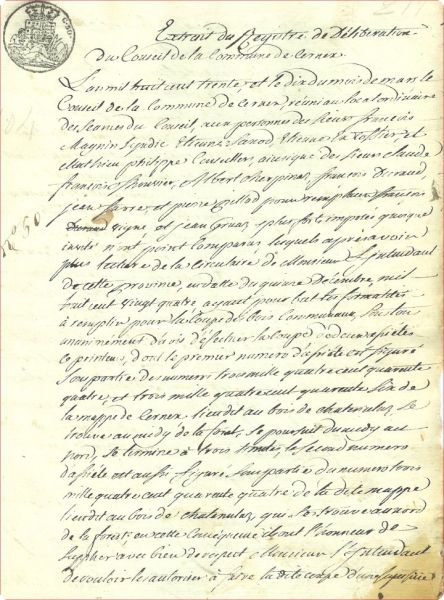 Extrait du Registre de Délibération
du Conseil de la Commune de Cernex
L'an mil huit cent trente, et le dix du mois de mars le
Conseil de la Commune de Cernex réuni au local ordinaire
des séances du Conseil, aux personnes des sieurs françois
Magnin Syndic Etienne Saxod, Etienne La
et
Mathieu philippe Conseiller, ainsi que des sieurs Claude
françois Bouvier, Albert Chappinaz, françois Duraud,
jean Larre, et pierre pour remplacer francois
Duraud et jean plus forts imposés quoique
invité n'ont point Comparus, lesquels après avoir
plus lecture de la Circulaire de Monsieur L'Intendant
de cette province, en date du quinze décembre, mil
huit cent vingt quatre ayant pour but les formalités
à remplir pour la Coupe des bois Communaux,
unanimement d'avis d'éfectuer la Coupe de deux assiètes
ce printems, dont le premier numero d'assiète est figuré
Sous partie des numeros trois mille quatre cent quarante
quatre, et trois mille quatre cent quarante Six de
la mappe de Cernex lieudit au bois de chatenulaz, Se
trouve au midy de la foret, Se poursuit du midy au
nord, Se termine à trois le second numero
d'assiète est aussi figuré Sous partie du numero trois
mille quatre cent quarante quatre de la dite mappe
lieudit au bois de chatenulaz, qui Se trouve au nord
de la foret; en cette Conséquence ils ont l'honneur de
Supplier avec bien de respect Monsieur L'Intendant
de vouloir les autoriser à faire la dite coupe d'une superficie